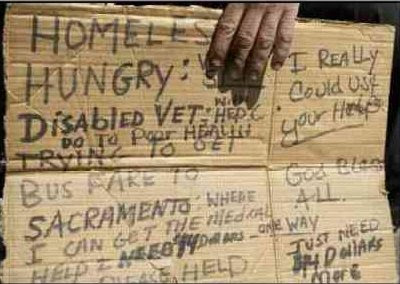 HOMELESS
HUNGRY:
DISABLED VET: W/HEP C
DO TO Poor HEALTH
TRYIN' TO GET
BUS FARE TO
SACRAMENTO: WHERE
I CAN GET THE MEDICAL
HELP I NEED 44 Dollars - one WAY
PLEASE HELP
I REALLY
COULD USE
your Help
God Bless
ALL.
JUST NEED
14 DOLLARS
More